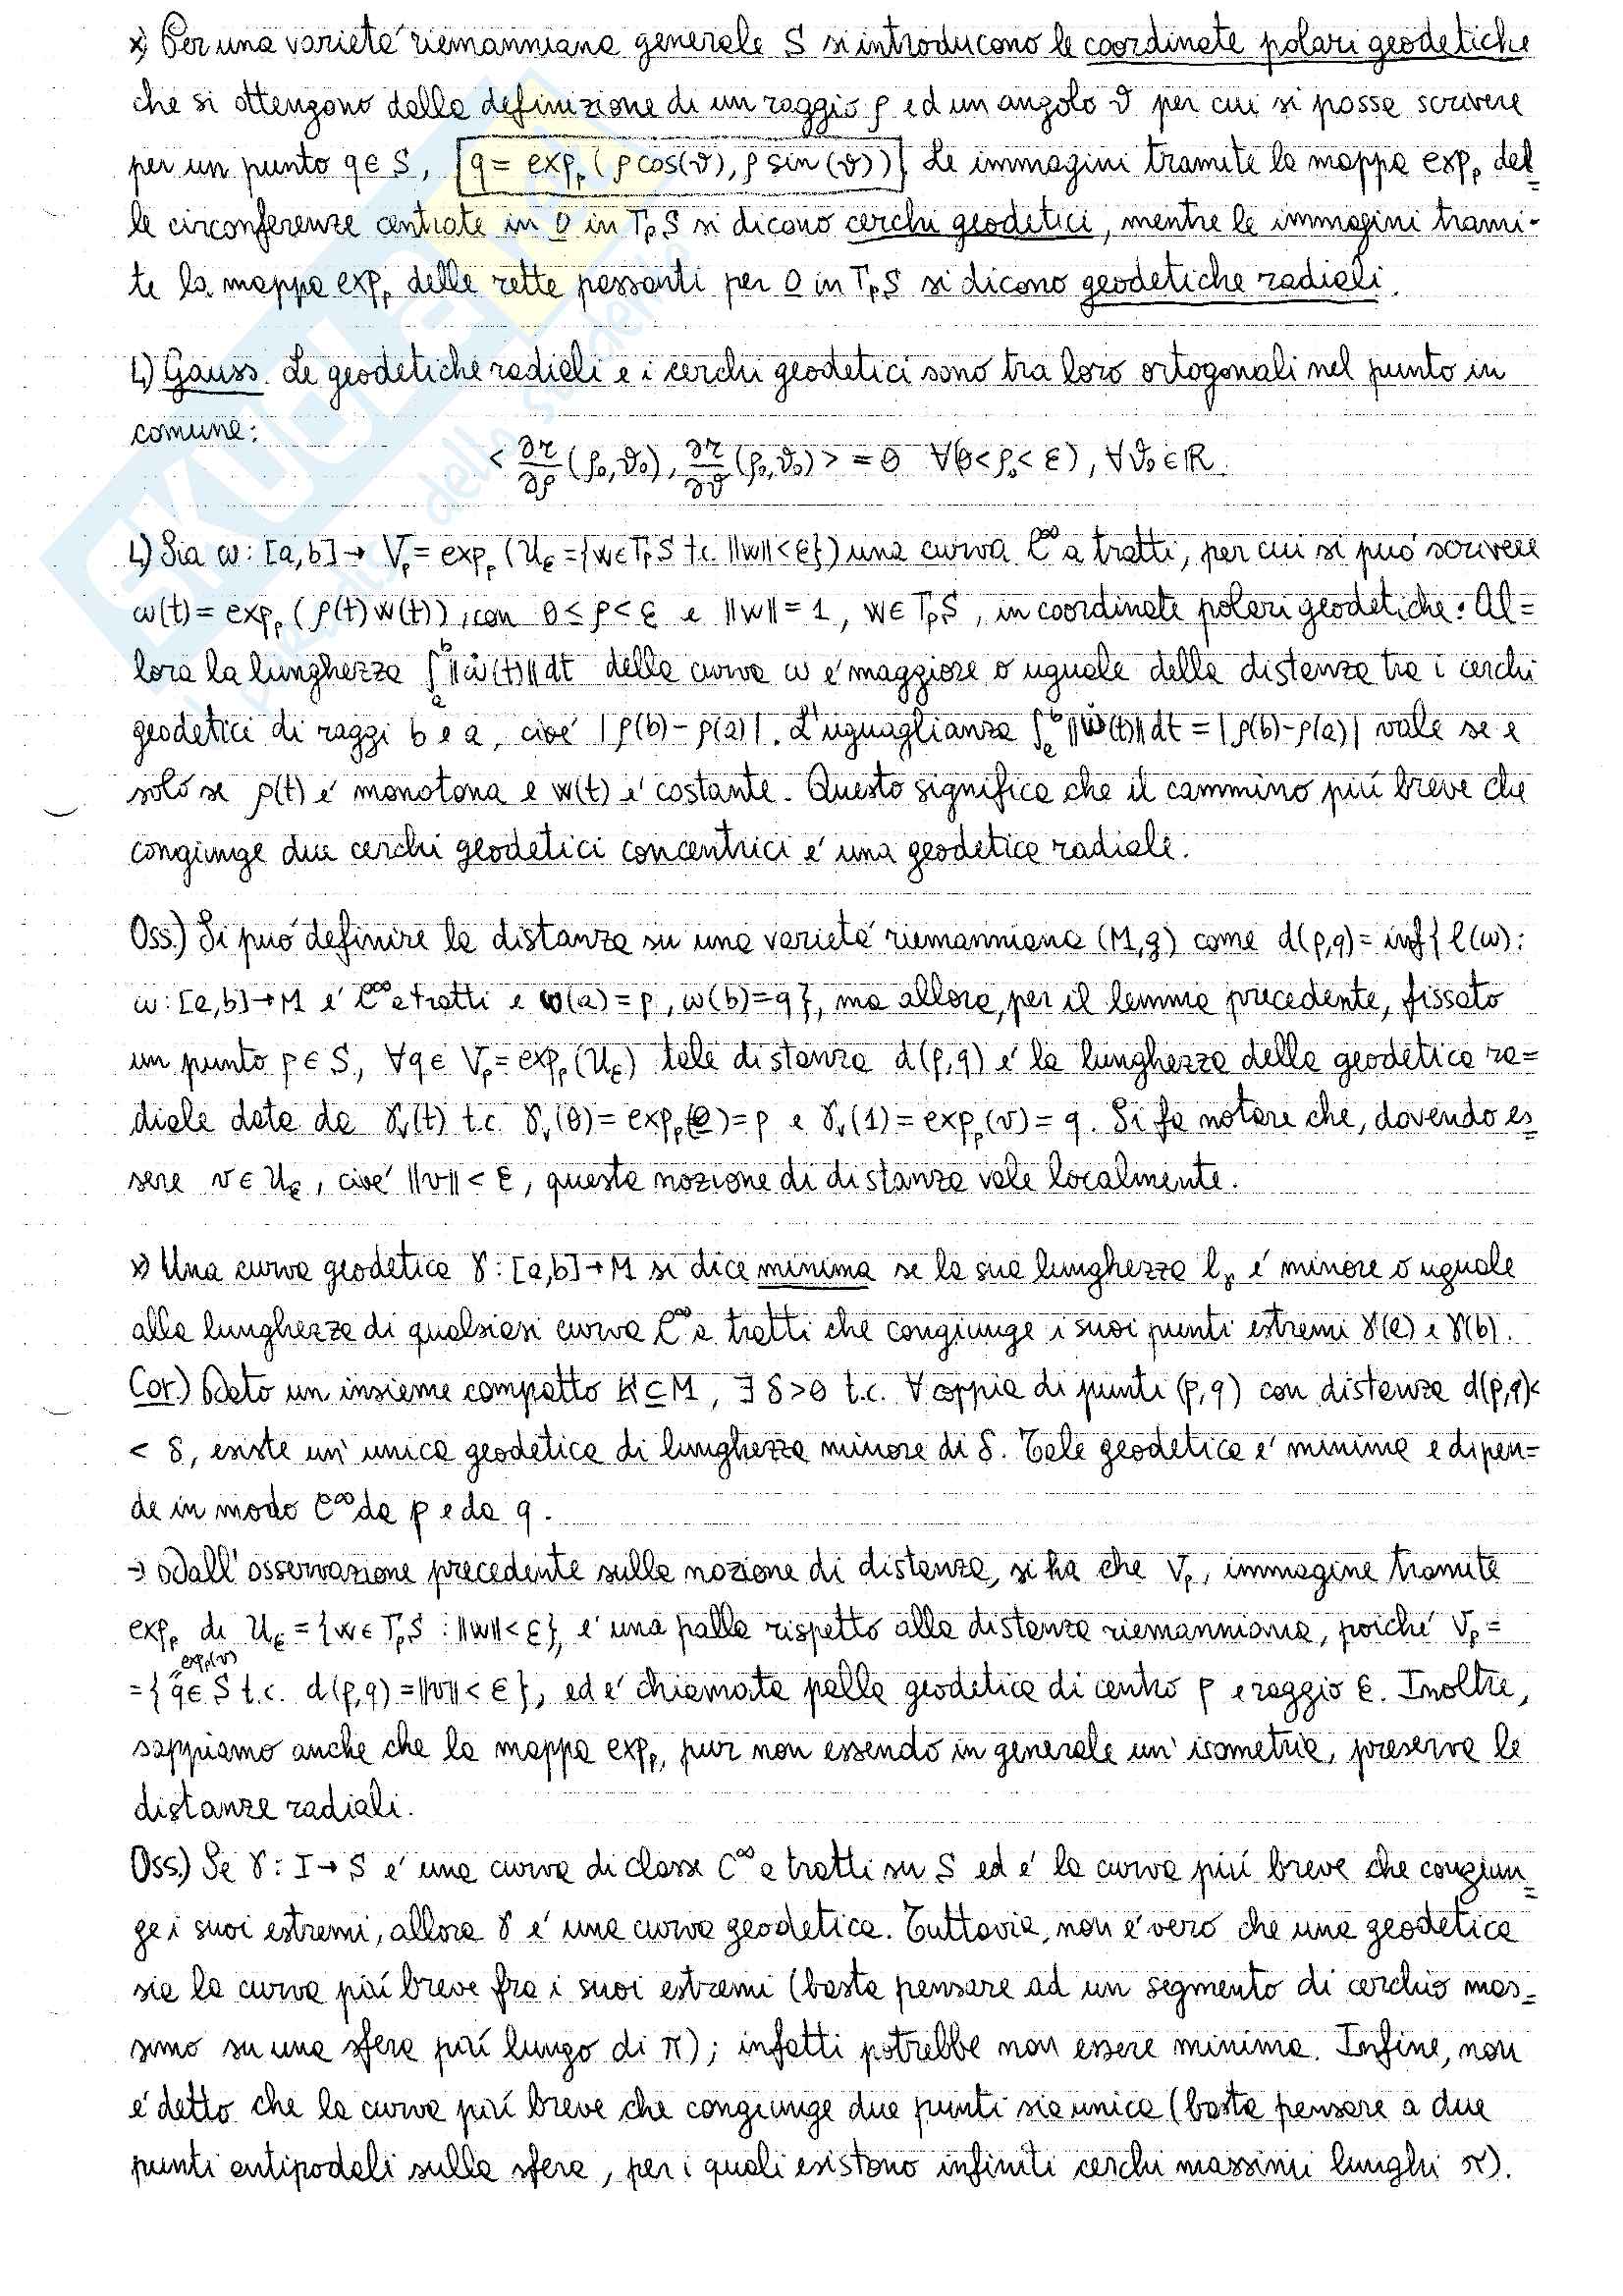 x) Per una varietà riemanniana generale S si introducono le coordinate polari geodetiche
che si ottengono dalla definizione di un raggio ρ ed un angolo ϑ per cui si possa scrivere
per un punto q∈S, [q = exp_p (ρcos(ϑ), ρ sin(ϑ))]. Le immagini tramite la mappa exp_p del=
le circonferenze centrate in 0 in T_pS si dicono cerchi geodetici, mentre le immagini trami-
te la mappa exp_p delle rette passanti per 0 in T_pS si dicono geodetiche radiali.
L) Gauss. Le geodetiche radiali e i cerchi geodetici sono tra loro ortogonali nel punto in
comune:
< ∂r/∂ρ (ρ₀,ϑ₀), ∂r/∂ϑ (ρ₀,ϑ₀) > = 0 ∀(0<ρ₀<ε), ∀ϑ₀∈ℝ.
L) Sia ω: [a,b]→ V_p = exp_p (U_ε = {w∈T_pS t.c. ||w||<ε}) una curva C^∞ a tratti, per cui si può scrivere
ω(t) = exp_p (ρ(t) w(t)), con 0≤ρ<ε e ||w||=1, w∈T_pS, in coordinate polari geodetiche. Al=
lora la lunghezza ∫_a^b ||ω̇(t)||dt della curva ω è maggiore o uguale della distanza tra i cerchi
geodetici di raggi b e a, cioè |ρ(b)-ρ(a)|. L'uguaglianza ∫_a^b ||ω̇(t)||dt = |ρ(b)-ρ(a)| vale se e
solo se ρ(t) è monotona e w(t) è costante. Questo significa che il cammino più breve che
congiunge due cerchi geodetici concentrici è una geodetica radiale.
Oss.) Si può definire la distanza su una varietà riemanniana (M,g) come d(p,q)= inf{ℓ(ω):
ω: [a,b]→M è C^∞ a tratti e ω(a)=p, ω(b)=q}, ma allora, per il lemma precedente, fissato
un punto p∈S, ∀q∈V_p=exp_p(U_ε) tale distanza d(p,q) è la lunghezza della geodetica ra=
diale data da γ_v(t) t.c. γ_v(0)=exp_p(0)=p e γ_v(1)=exp_p(v)=q. Si fa notare che, dovendo es=
sere v∈U_ε, cioè ||v||<ε, questa nozione di distanza vale localmente.
x) Una curva geodetica γ: [a,b]→M si dice minima se la sua lunghezza l_γ è minore o uguale
alla lunghezza di qualsiasi curva C^∞ a tratti che congiunge i suoi punti estremi γ(a) e γ(b).
Cor.) Dato un insieme compatto K⊆M, ∃ δ>0 t.c. ∀ coppia di punti (p,q) con distanza d(p,q)<
< δ, esiste un'unica geodetica di lunghezza minore di δ. Tale geodetica è minima e dipen=
de in modo C^∞ da p e da q.
→ Dall'osservazione precedente sulla nozione di distanza, si ha che V_p, immagine tramite
exp_p di U_ε = {w∈T_pS : ||w||<ε}, è una palla rispetto alla distanza riemanniana, poiché V_p =
exp_p(v)
= {q∈S t.c. d(p,q)=||v||<ε}, ed è chiamata palla geodetica di centro p e raggio ε. Inoltre,
sappiamo anche che la mappa exp_p, pur non essendo in generale un'isometria, preserva le
distanze radiali.
Oss.) Se γ: I→S è una curva di classe C^∞ a tratti su S ed è la curva più breve che congiun=
ge i suoi estremi, allora γ è una curva geodetica. Tuttavia, non è vero che una geodetica
sia la curva più breve fra i suoi estremi (basta pensare ad un segmento di cerchio mas=
simo su una sfera più lungo di π); infatti potrebbe non essere minima. Infine, non
è detto che la curva più breve che congiunge due punti sia unica (basta pensare a due
punti antipodali sulla sfera, per i quali esistono infiniti cerchi massimi lunghi π).